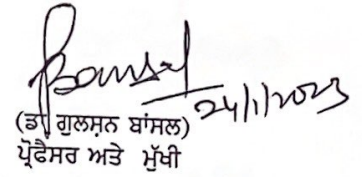 Bansal 24/1/2023
(ਡਾ ਗੁਲਸ਼ਨ ਬਾਂਸਲ)
ਪ੍ਰੋਫੈਸਰ ਅਤੇ ਮੁੱਖੀ